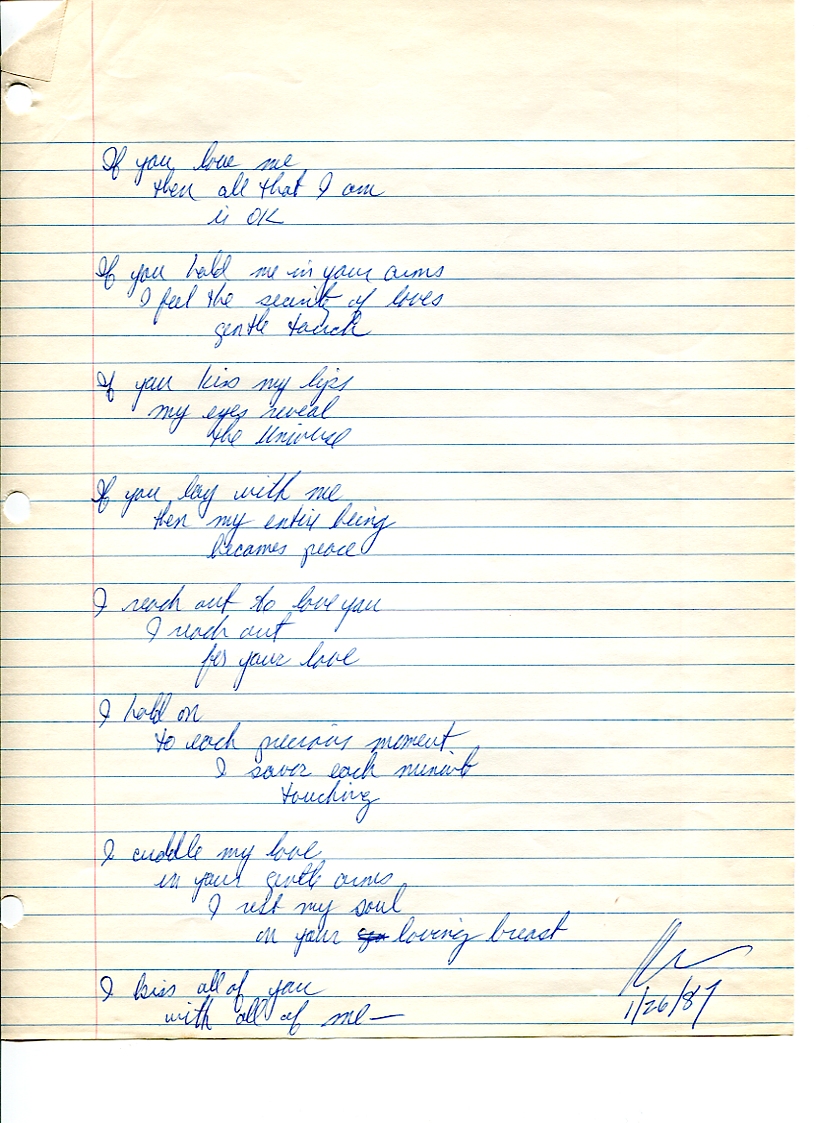 If you love me
then all that I am
is OK
If you hold me in your arms
I feel the security of loves
gentle touch
If you kiss my lips
my eyes reveal
the Universe
If you lay with me
then my entire being
becomes peace
I reach out to love you
I reach out
for your love
I hold on
to each precious moment
I savor each minute
touching
I cuddle my love
in your gentle arms
I rest my soul
on your loving breast
I kiss all of you
with all of me—
1/26/87